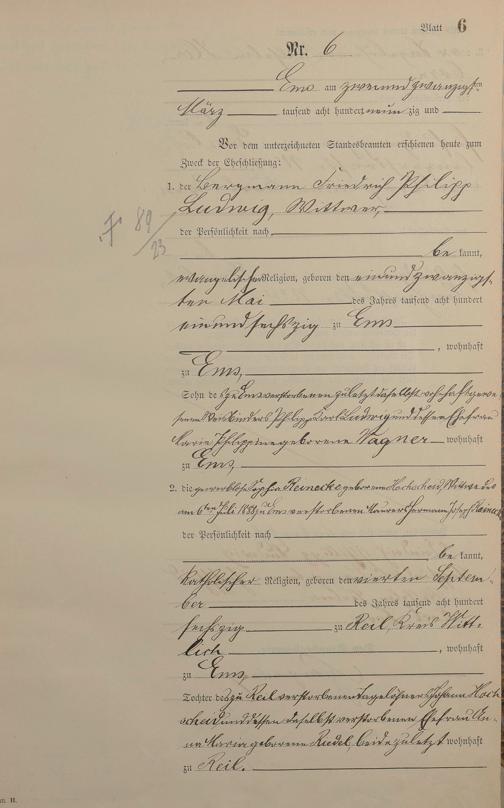 Blatt 6
Nr. 6
Ems am zweiundzwanzigsten
März tausend acht hundert neun zig und
Vor dem unterzeichneten Standesbeamten erschienen heute zum
Zweck der Eheschließung:
1. der Bergmann Friedrich Philipp
Ludwig, Wittwer,
der Persönlichkeit nach
be kannt,
evangelischer Religion, geboren den einundzwanzigs-
ten Mai des Jahres tausend acht hundert
einundsechszig zu Ems
, wohnhaft
zu Ems,
Sohn des zu Ems verstorbenen zuletzt daselbst wohnhaft gewe-
senen Philipp Karl Ludwig und dessen Ehefrau
Marie Philippine geborene Wagner wohnhaft
zu Ems,
2. die gewerblose Sophia Reinecke geborene Hochscheid, Wittwe des
am 6ten Juli 1889 zu Ems verstorbenen Maurers Hermann Joseph
der Persönlichkeit nach
be kannt,
katholischer Religion, geboren den vierten Septem-
ber des Jahres tausend acht hundert
sechszig zu Reil, Kreis Witt-
lich , wohnhaft
zu Ems,
Tochter des zu Reil verstorbenen Tagelöhners Johann Hoch-
scheid und dessen daselbst verstorbenen Ehefrau An-
na Maria geborene Riedel, beide zuletzt wohnhaft
zu Reil.
F 89
/23